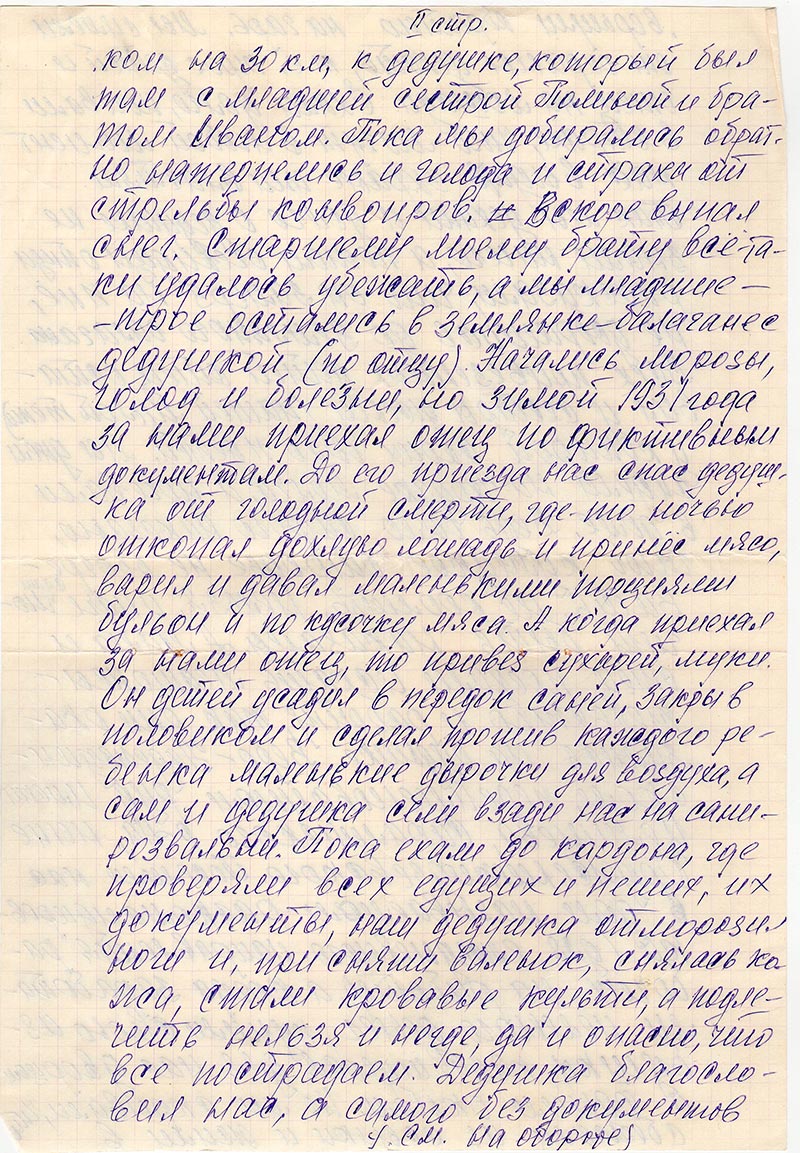 II стр.
.ком на 30 км, к дедушке, который был
там с младшей сестрой Полиной и бра-
том Иваном. Пока мы добирались обрат-
но натерпелись и голода и страха от
стрельбы конвоиров. # Вскоре выпал
снег. Старшему моему брату всё-та-
ки удалось убежать, а мы младшие —
-трое остались в землянке-балагане с
дедушкой (по отцу). Начались морозы,
голод и болезни, но зимой 1931 года
за нами приехал отец по фиктивным
документам. До его приезда нас спас дедуш-
ка от голодной смерти, где-то ночью
откопал дохлую лошадь и принёс мясо,
варил и давал маленькими порциями
бульон и по кусочку мяса. А когда приехал
за нами отец, то привез сухарей, муки.
Он детей усадил в передок саней, закрыв
половиком и сделал против каждого ре-
бенка маленькие дырочки для воздуха, а
сам и дедушка сели взади нас на сани-
розвальни. Пока ехали до кардона, где
проверяли всех едущих и пеших, их
документы, наш дедушка отморозил
ноги и, при снятии валенок, снялась ко-
жа, стали кровавые культи, а подле-
чить нельзя и негде, да и опасно, что
все пострадаем. Дедушка благосло-
вил нас, а самого без документов
(см. на обороте)